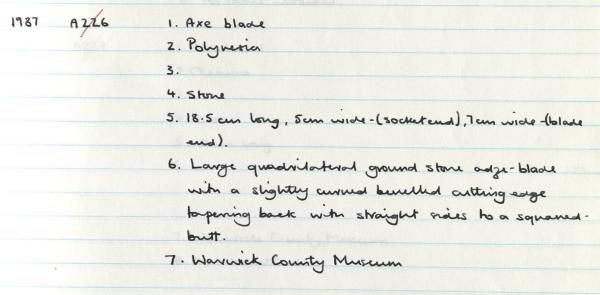 1987 A226 1. Axe blade
2. Polynesia
3.
4. Stone
5. 18.5cm long, 5cm wide-(socket end), 7cm wide-(blade
end).
6. Large quadrilateral ground stone adze-blade
with a slightly curved bevelled cutting edge
tapering back with straight sides to a squared-
butt.
7. Warwick County Museum